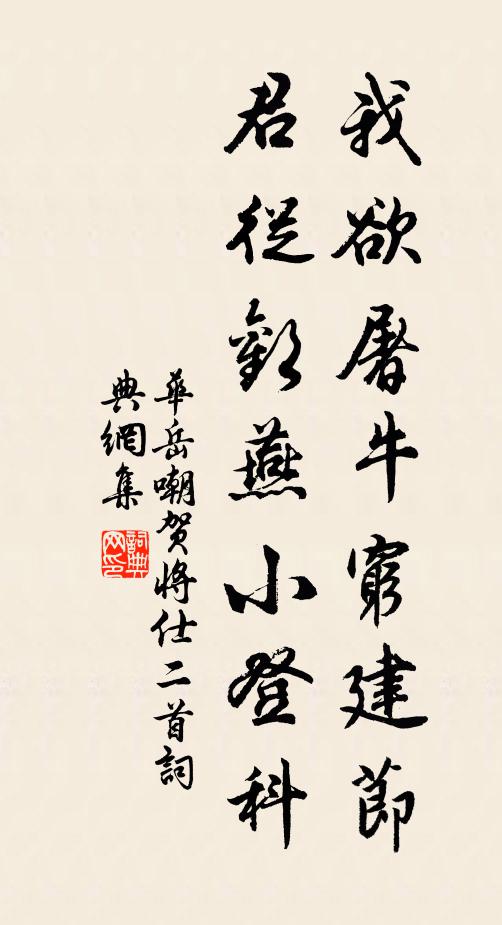 我欲屠牛窮建節
君從燕小登科
華岳嘲贺將仕二首詞
典網集
詞典
网印